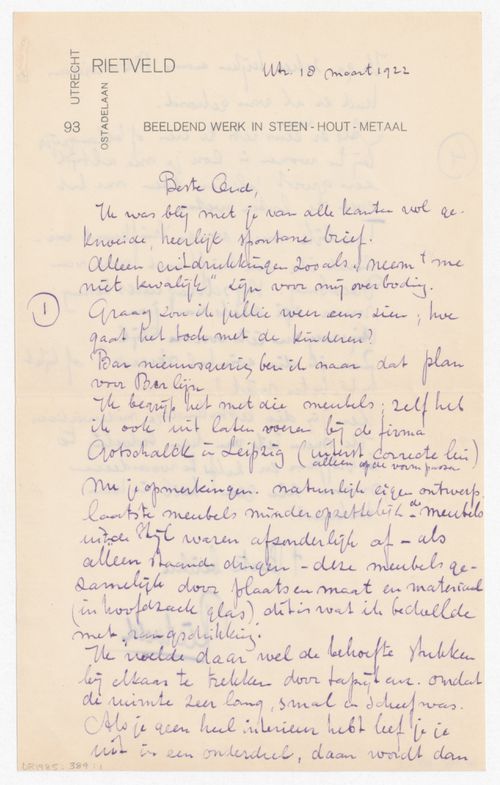 UTRECHT
RIETVELD
OSTADELAAN
93
BEELDEND WERK IN STEEN - HOUT - METAAL
Utr. 18 maart 1922
Beste Oud,
Ik was blij met je van alle kanten vol ge-
kneide, heerlijk spontane brief.
Alleen uitdrukkingen zooals "neem 't me
niet kwalijk" zijn voor mij overbodig.
1
Graag zou ik jullie weer eens zien; hoe
gaat het toch met de kinderen?
Bar nieuwsgierig ben ik naar dat plan
voor Berlijn
Ik begrijp het met die meubels; zelf heb
ik ook uit laten voeren bij de firma
Gotschalck in Leipzig (uiterst correcte lui)
alleen op de vorm
Nu je opmerkingen. natuurlijk eigen ontwerp.
laatste meubels minder opzettelijk - de meubels
uit de Stijl waren afzonderlijk af - als
alleen staande dingen - deze meubels ge-
zamelijk door plaats en maat en materiaal
(in hoofdzaak glas) dit is wat ik bedoelde
met "rangschikking".
Ik voelde daar wel de behoefte stukken
bij elkaar te trekken door tapijt enz. omdat
de ruimte zeer lang, smal en scheef was.
Als je geen heel interieur hebt leef je je
uit in een onderdeel, daar wordt dan
DR1985:389:1